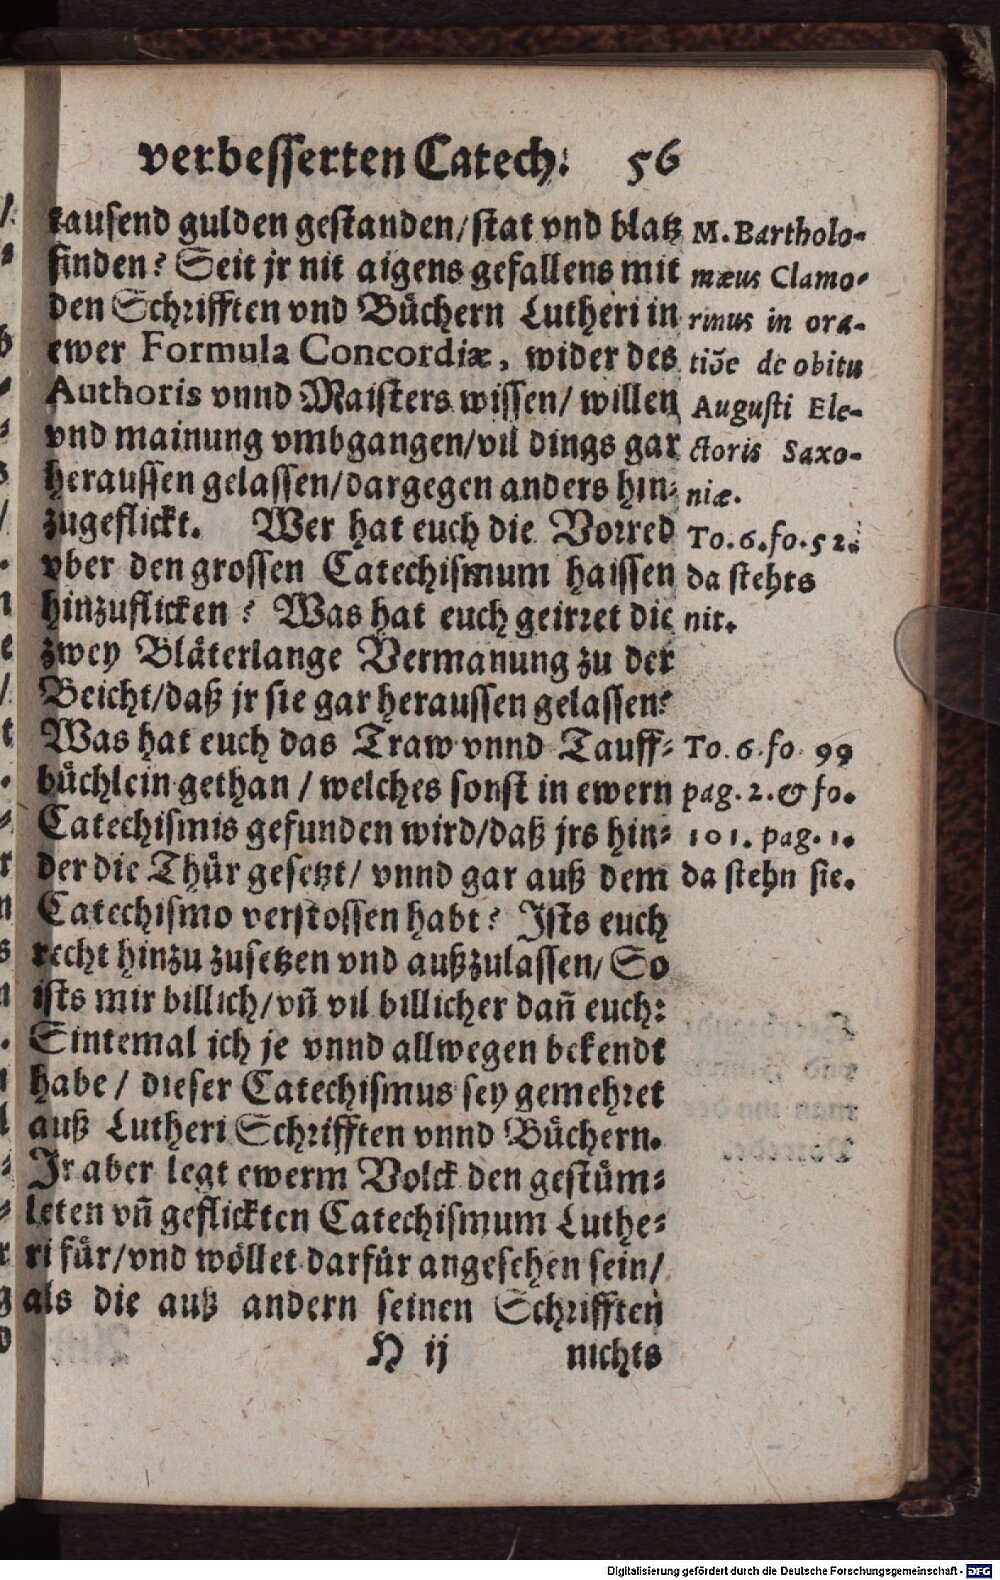 verbesserten Catech: 56
tausend gulden gestanden/stat vnd blatz
finden? Seit jr nit aigens gefallens mit
den Schrifften vnd Büchern Lutheri in
ewer Formula Concordiæ, wider des
Authoris vnnd Maisters wissen/ willen
vnd mainung vmbgangen/vil dings gar
heraussen gelassen/dargegen anders hin-
zugeflickt. Wer hat euch die Vorred
vber den grossen Catechismum haissen
hinzuflicken? Was hat euch geirret die
zwey Bläterlange Vermanung zu der
Beicht/daß jr sie gar heraussen gelassen?
Was hat euch das Traw vnnd Tauff-
büchlein gethan / welches sonst in ewern
Catechismis gefunden wird/daß jrs hin-
der die Thür gesetzt/ vnnd gar auß dem
Catechismo verstossen habt? Ists euch
recht hinzu zusetzen vnd außzulassen/ So
ists mir billich/vñ vil billicher dañ euch:
Sintemal ich je vnnd allwegen bekendt
habe / dieser Catechismus sey gemehret
auß Lutheri Schrifften vnnd Büchern.
Ir aber legt ewerm Volck den gestüm-
leten vñ geflickten Catechismum Luthe-
ri für/vnd wöllet darfür angesehen sein/
als die auß andern seinen Schrifften
H ij nichts
M. Bartholo-
mæus Clamo-
rinus in ora-
tiõe de obitu
Augusti Ele-
ctoris Saxo-
niæ.
To. 6. fo. 52.
da stehts
nit.
To. 6. fo. 99
pag. 2. & fo.
101. pag. 1.
da stehn sie.
Digitalisierung gefördert durch die Deutsche Forschungsgemeinschaft - DFG